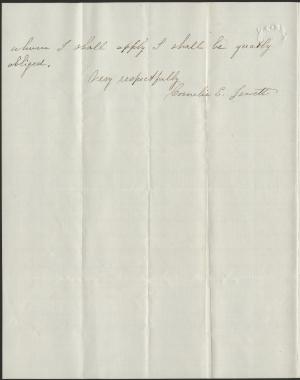 whom I shall apply I shall be greatly
obliged.
Very respectfully
Cornelia E.